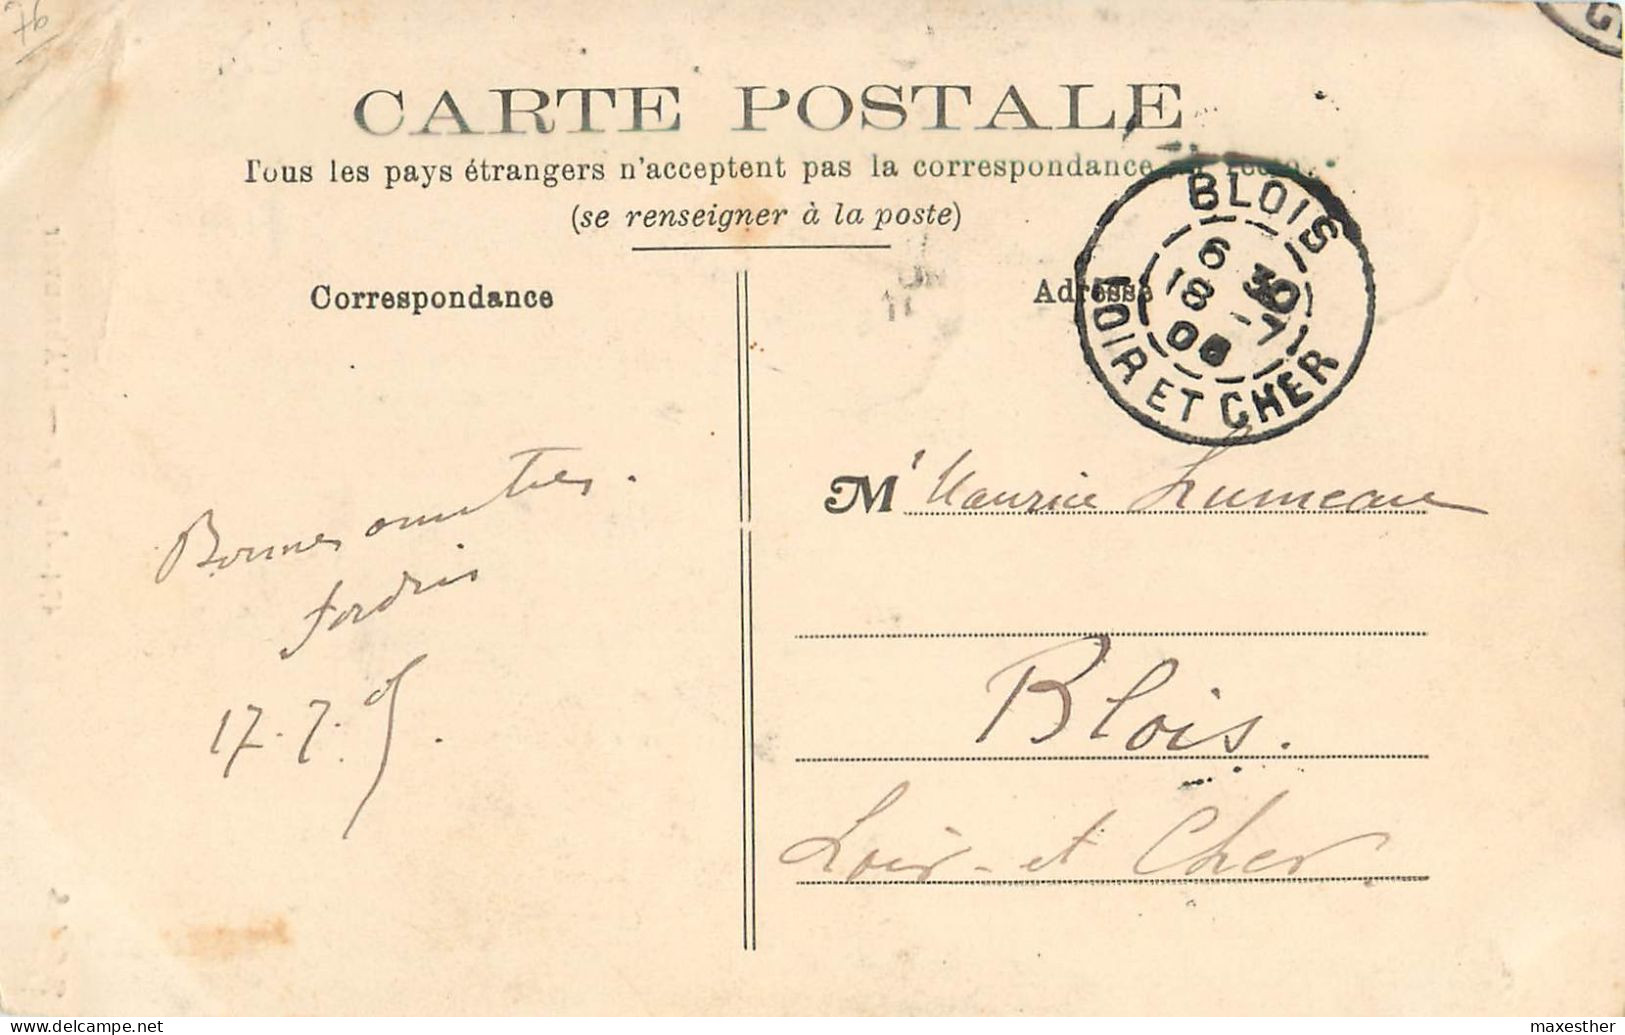 76
CARTE POSTALE
Tous les pays étrangers n'acceptent pas la correspondance au recto
(se renseigner à la poste)
Correspondance
Bonnes amitiés.
17.7.05.
Adresse
BLOIS
6 30
18 -7
LOIR ET CHER
M' Maurice Lumeau
Blois.
Loir-et Cher
delcampe.net
maxesther